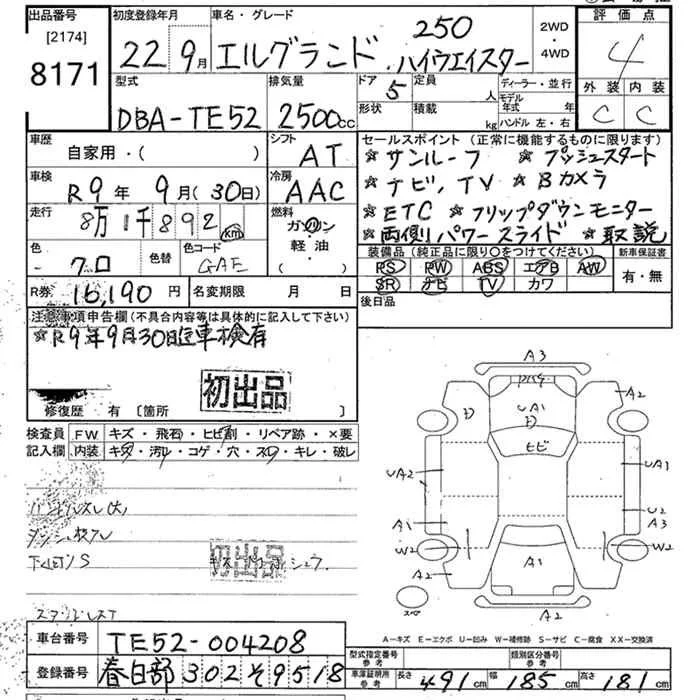 出品番号 初度登録年月 車名・グレード 2WD 評価点
[2174] 22年9月 エルグランド 250 ・ 4
8171 ハイウエイスター 4WD
型式 排気量 ドア 定員 ディーラー・並行 外装 内装
DBA-TE52 2500cc 5 人 モデル年式 年 C C
形状 積載 kg ハンドル 左・右
車歴 シフト セールスポイント(正常に機能するものに限ります)
自家用・( ) AT ☆サンルーフ ☆プッシュスタート
車検 冷房 ☆ナビ,TV ☆Bカメラ
R9年9月(30日) AAC ☆ETC ☆フリップダウンモニター
走行 燃料 ☆両側パワースライド ☆取説
8万1千892km ガソリン
軽油
・( )
色 色替 色コード 装備品(純正品に限り○をつけてください) 新車保証書
クロ GAE PS PW ABS エアB AW 有・無
SR ナビ TV カワ
R券 16,190円 名変期限 月 日 後日品
注意事項申告欄(不具合内容等は具体的に記入して下さい)
☆R9年9月30日迄車検有
初出品
修復歴 有 [箇所 ]
検査員 FW キズ・飛石・ヒビ割・リペア跡・×要
記入欄 内装 キズ・汚れ・コゲ・穴・スレ・キレ・破レ
ハンドルスレ(大)
下廻りS
初出品
A3
A2
UA1
ヒビ
UA2 UA1
A1 U2
A3
W2 W2
A1
A2
A2
スペア
A-キズ E-エクボ U-凹み W-補修跡 S-サビ C-腐食 XX-交換済
車台番号 TE52-004208
型式指定番号 参考 類別区分番号 参考
登録番号 春日部 302 そ 9518
車庫証明用 参考 長さ 491cm 幅 185cm 高さ 181cm